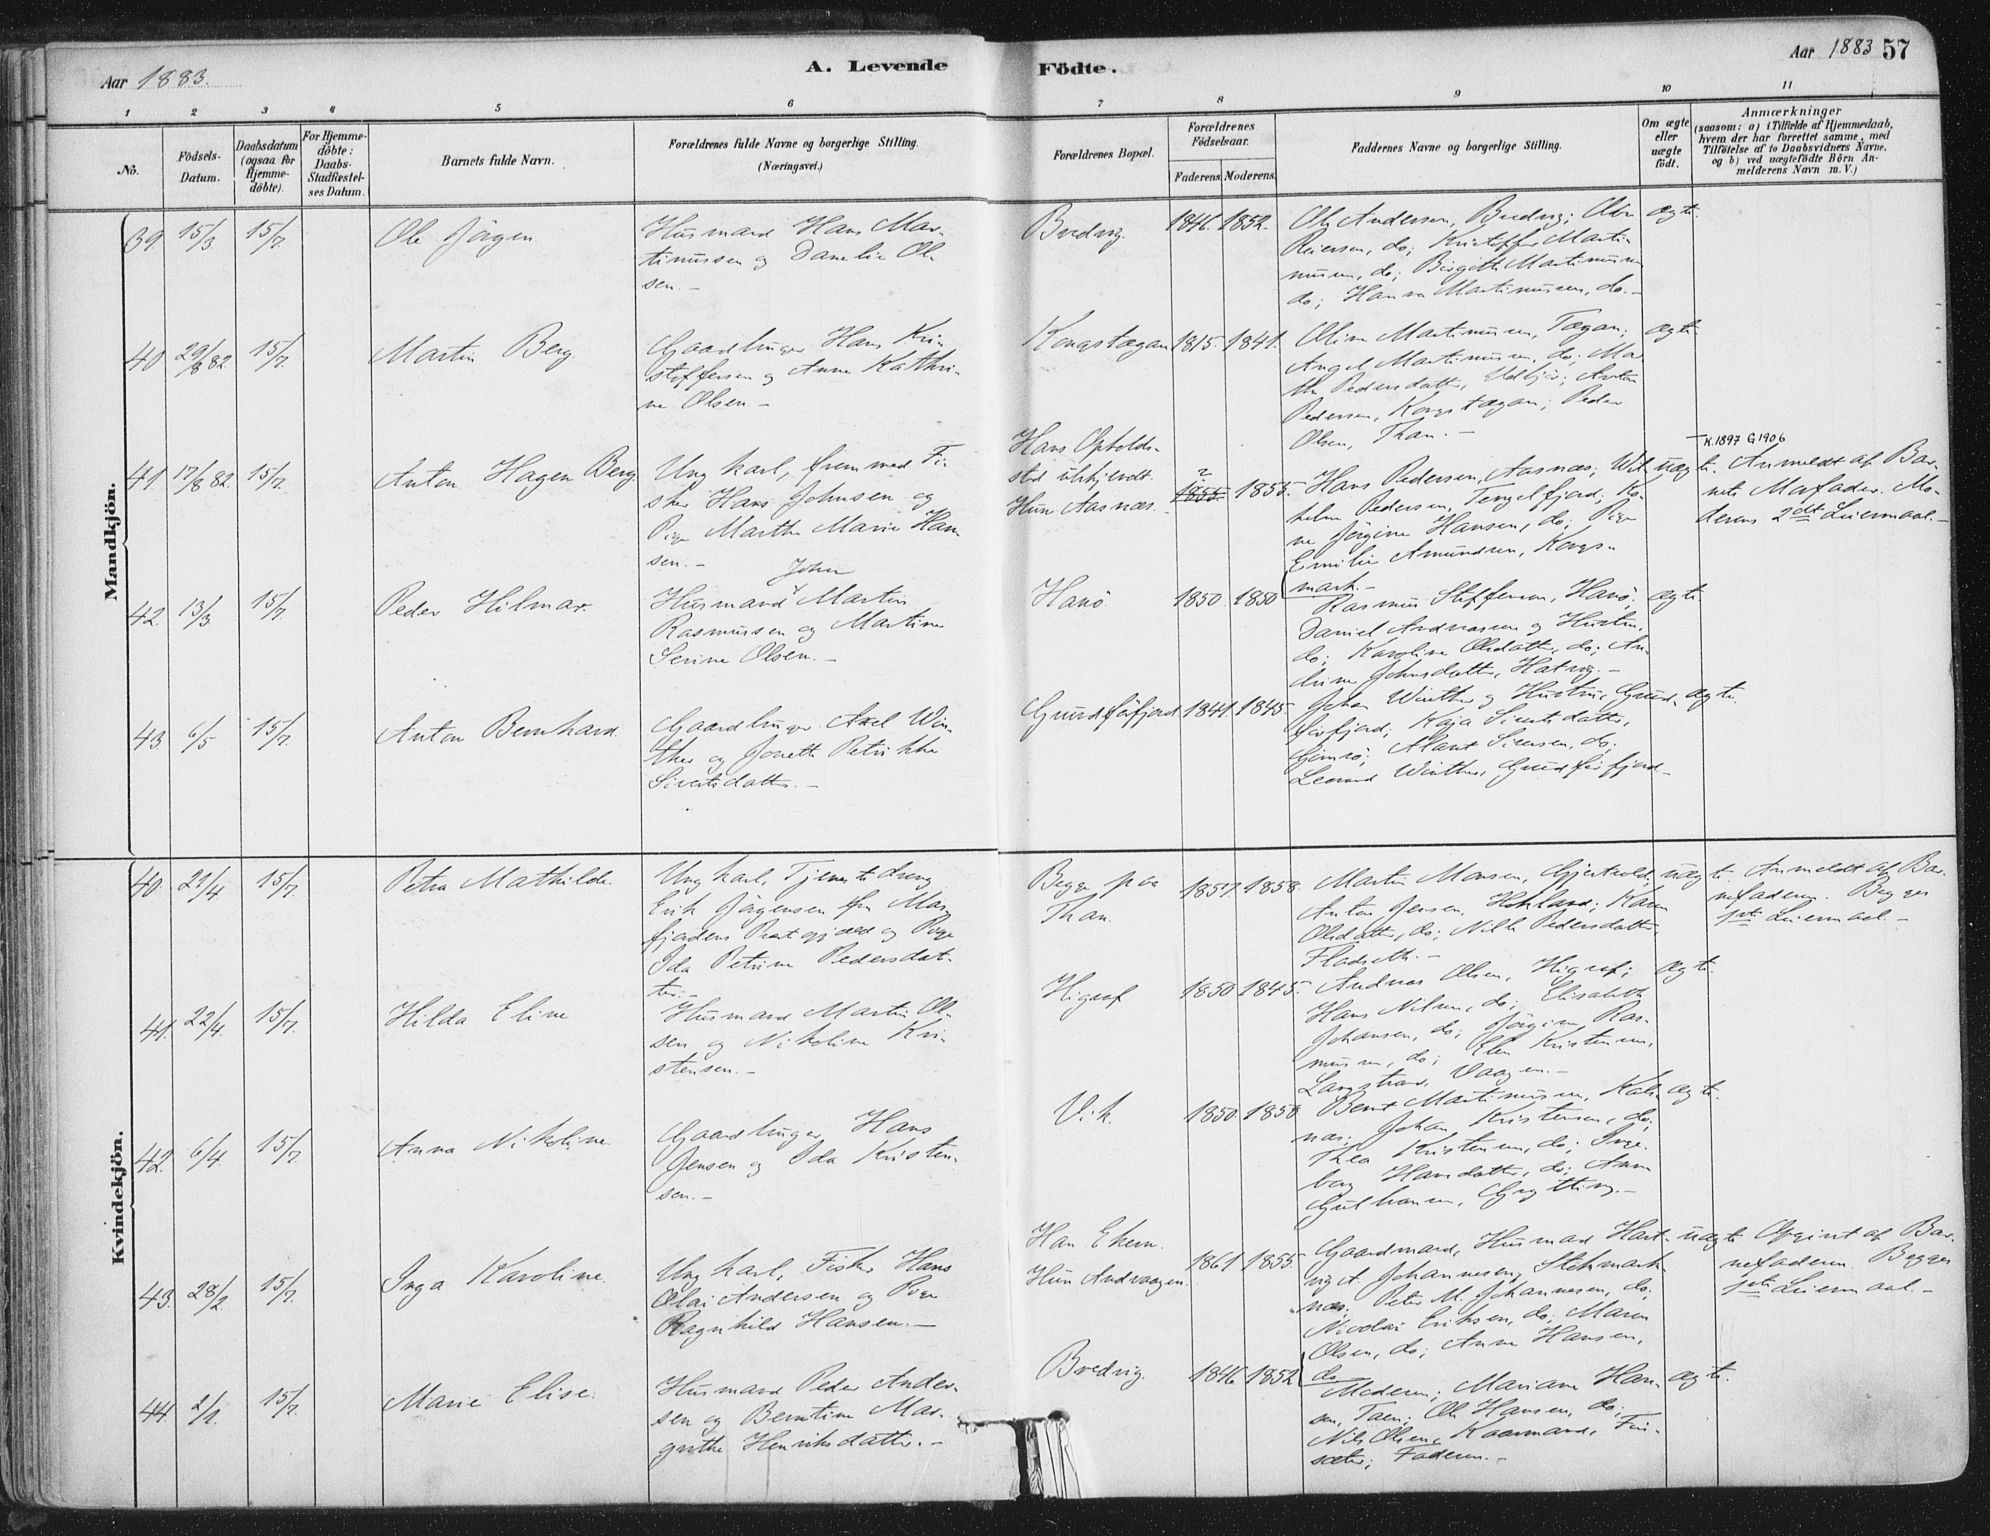 Aar 1883.
A. Levende
Födte.
Aar 1883 57
1 2 3 4 5 6 7 8 9 10 11
No.
Födsels-Datum.
Daabsdatum (ogsaa for Hjemme-döbte).
For Hjemme-döbte: Daabs-Stadfæstel-ses Datum.
Barnets fulde Navn.
Forældrenes fulde Navne og borgerlige Stilling.
(Næringsvei.)
Forældrenes Bopæl.
Forældrenes Födselsaar.
Faderens Moderens.
Faddernes Navne og borgerlige Stilling.
Om ægte eller uægte födt.
Anmærkninger
(saasom: a) i Tilfælde af Hjemmedaab,
hvem der har forrettet samme, med
Tilföielse af to Daabsvidners Navne,
og b) ved uægtefödte Börn An-
melderens Navn m. V.)
Mandkjön.
39. 15/3 15/7. Ole Jörgen
Husmand Hans Mar-
tinussen og Danelie Ol-
sen.-
Bredvig. 1846. 1852.
Ole Andersen, Bredvig; Olin
Reiersen, do; Kristoffer Marti-
nusen, do; Birgitte Martinusen
do; Hanna Martinusen, do.-
ægte.
40 29/8 82 15/7. Martin Berg.
Gaardbruger Hans Kri-
stoffersen og Anne Kathri-
ne Olsen -
Kongstægan 1815. 1841.
Oline Martinusen, Tægan;
Angel Martinusen, do; Mar
the Pedersdatter, ; Anton
Pedersen, Kongstægan; Peder
Olsen, Than.-
ægte
41 17/8 82. 15/7. Anton Hagen Berg.
Ung karl, fremmed Fi-
sker Hans Johnsen og
Pige Marthe Marie Han
sen.-
Hans Opholds-
sted ubekjendt.
Hun Aasnæs.
? 1855. 1855.
Hans Pedersen, Aasnæs; Wil
helm Pedersen, Tengelfjord; Ka-
ne Jörgine Hansen, do; Pige
Emilie Amundsen, Kongs-
mark.-
uægte.
K.1897 G1906
Anmeldt af Bar-
nets Morfader. Mo-
derens 2det Leiermaal.-
42. 13/3 15/7. Peder Hilmar.
John
Husmand Martin
Rasmussen og Martine
Serine Olsen.-
Hanö. 1850. 1850
Rasmus Steffensen, Hanö;
Daniel Andreassen og Hustru,
do; Karoline Olsdatter, do; An-
drine Johnsdatter, Hatvig.-
ægte.
43. 6/5 15/7. Anton Bernhard.
Gaardbruger Axel Win
ther og Jonette Petrikke
Sivertsdatter.-
Grundförfjord 1841. 1845.
Johan Winther og Hustru, Grund-
förfjord; Kaja Sivertsdatter,
Gimsö; Alant Siversen, do;
Leonard Winther, Grundförfjord-
ægte.
Kvindekjön.
40. 21/4 15/7. Petra Mathilde.
Ung karl, Tjenestedreng
Erik Jörgensen fra Mal
fjordens Præstegjæld og Pige
Ida Petrine Pedersdat-
ter.-
Begge paa
Than.
1857. 1858.
Martin Monsen, Gjertvold;
Anton Jensen, Hopland; Karen
Olsdatter, do; Nille Pedersdatter,
Fladseth.-
uægte.
Anmeldt af Bar
nefaderen. Begges
1ste Leiermaal.-
41. 22/4. 15/7. Hilda Eline
Husmand Martin Ol-
sen og Nikoline Kri-
stensen.-
Higraf 1850 1845.
Andreas Olsen, Higraf;
Hans Nilsen, do; Elisabeth
Johansen, do; Jörgine Ras-
musen, do; Elen Kristensen,
Langstrand, Vaagen.-
ægte.
42. 6/4. 15/7. Anna Nikoline.
Gaardbruger Hans
Jensen og Ida Kristen-
sen.-
Vik. 1850. 1850
Bent Martinusen, Kal-
næs; Johan Kristensen, do;
Thea Kristensen, do; Inge
borg Hansdatter, do; Anne
Gulhansen, Grytting.-
ægte.
43. 28/2 15/7. Inga Karoline.
Ung karl, Fisker Hans
Olai Andersen og Pige
Ragnhild Hansen.-
Han Ekern.
Hun Andvaagen.
1861 1855.
Gaardmand, Husmand Hart-
vig A. Johannesen, Stokmark-
næs; Peter M. Johannesen, do;
Nicolai Eriksen, do; Maren
Olsen, do; Anne Hansen,
do.
uægte
Opgivet af Bar-
nefaderen. Begges
1ste Leiermaal.-
44. 2/1. 15/7. Marie Elise.
Husmand Peder Ander-
sen og Berntine Mar-
grethe Henriksdatter.-
Bredvig. 1846 1852
Moderen; Mariane Han-
sen, Taen; Ole Hansen, do;
Nils Olsen, Kaarmand, Fin-
sæter; Faderen.-
ægte.